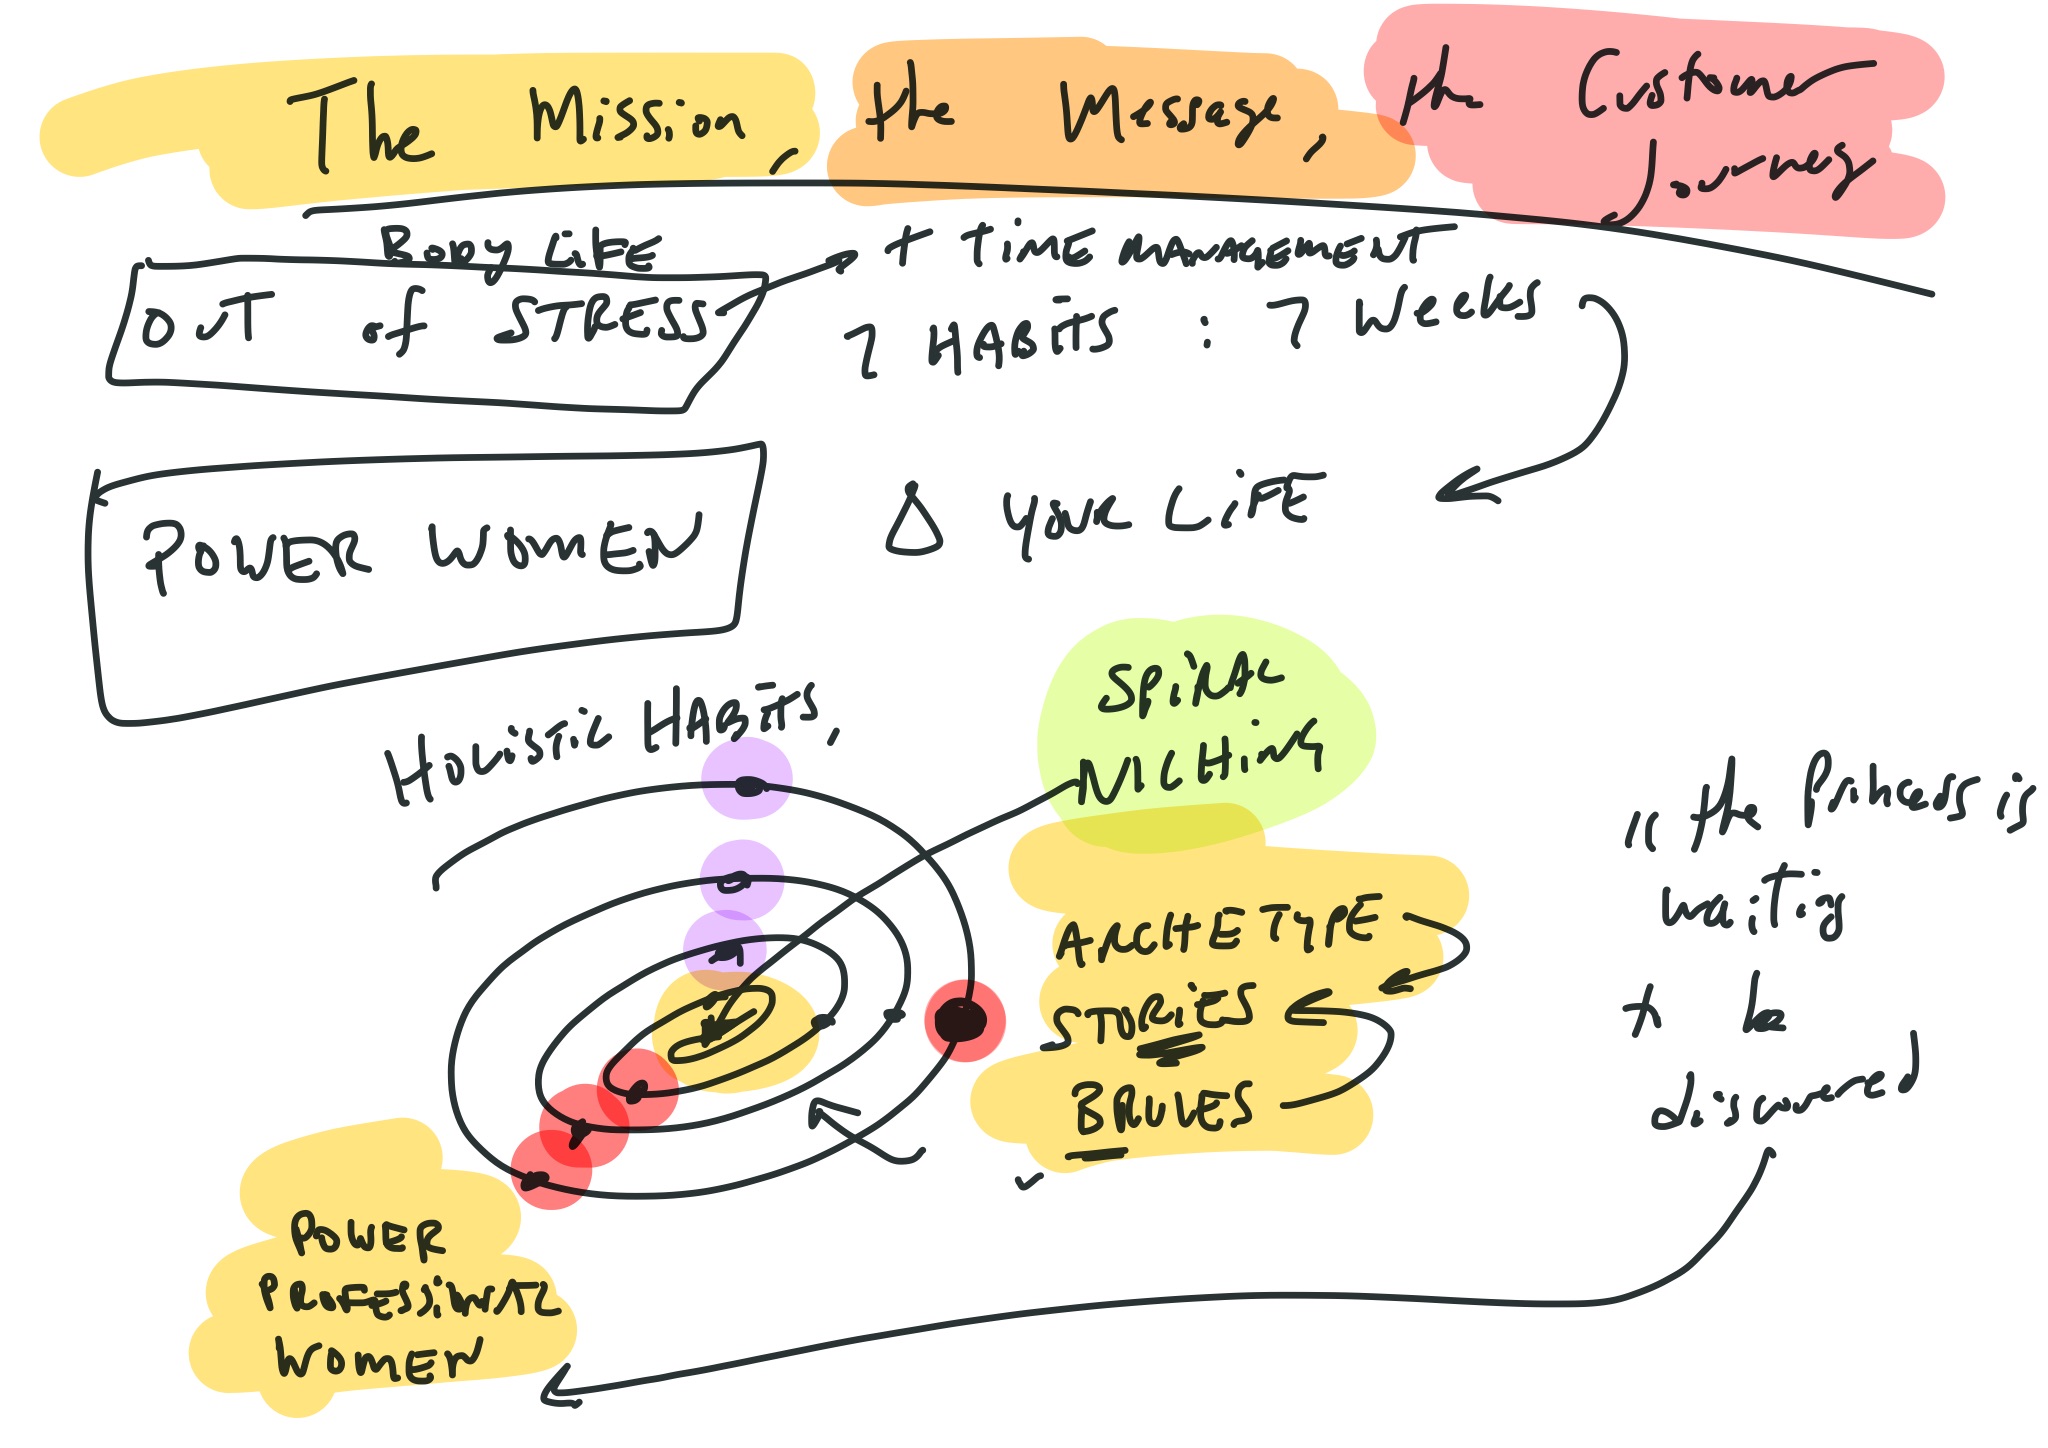 The Mission, the Message, the Customer
Journey
BODY LIFE
OUT of STRESS
+ TIME MANAGEMENT
7 HABITS : 7 Weeks
POWER WOMEN
Δ YOUR LIFE
HOLISTIC HABITS,
SPIRAL
NICHING
ARCHETYPE
STORIES
"the Princess is
waiting
to be
discovered
POWER
PROFESSIONAL
WOMEN